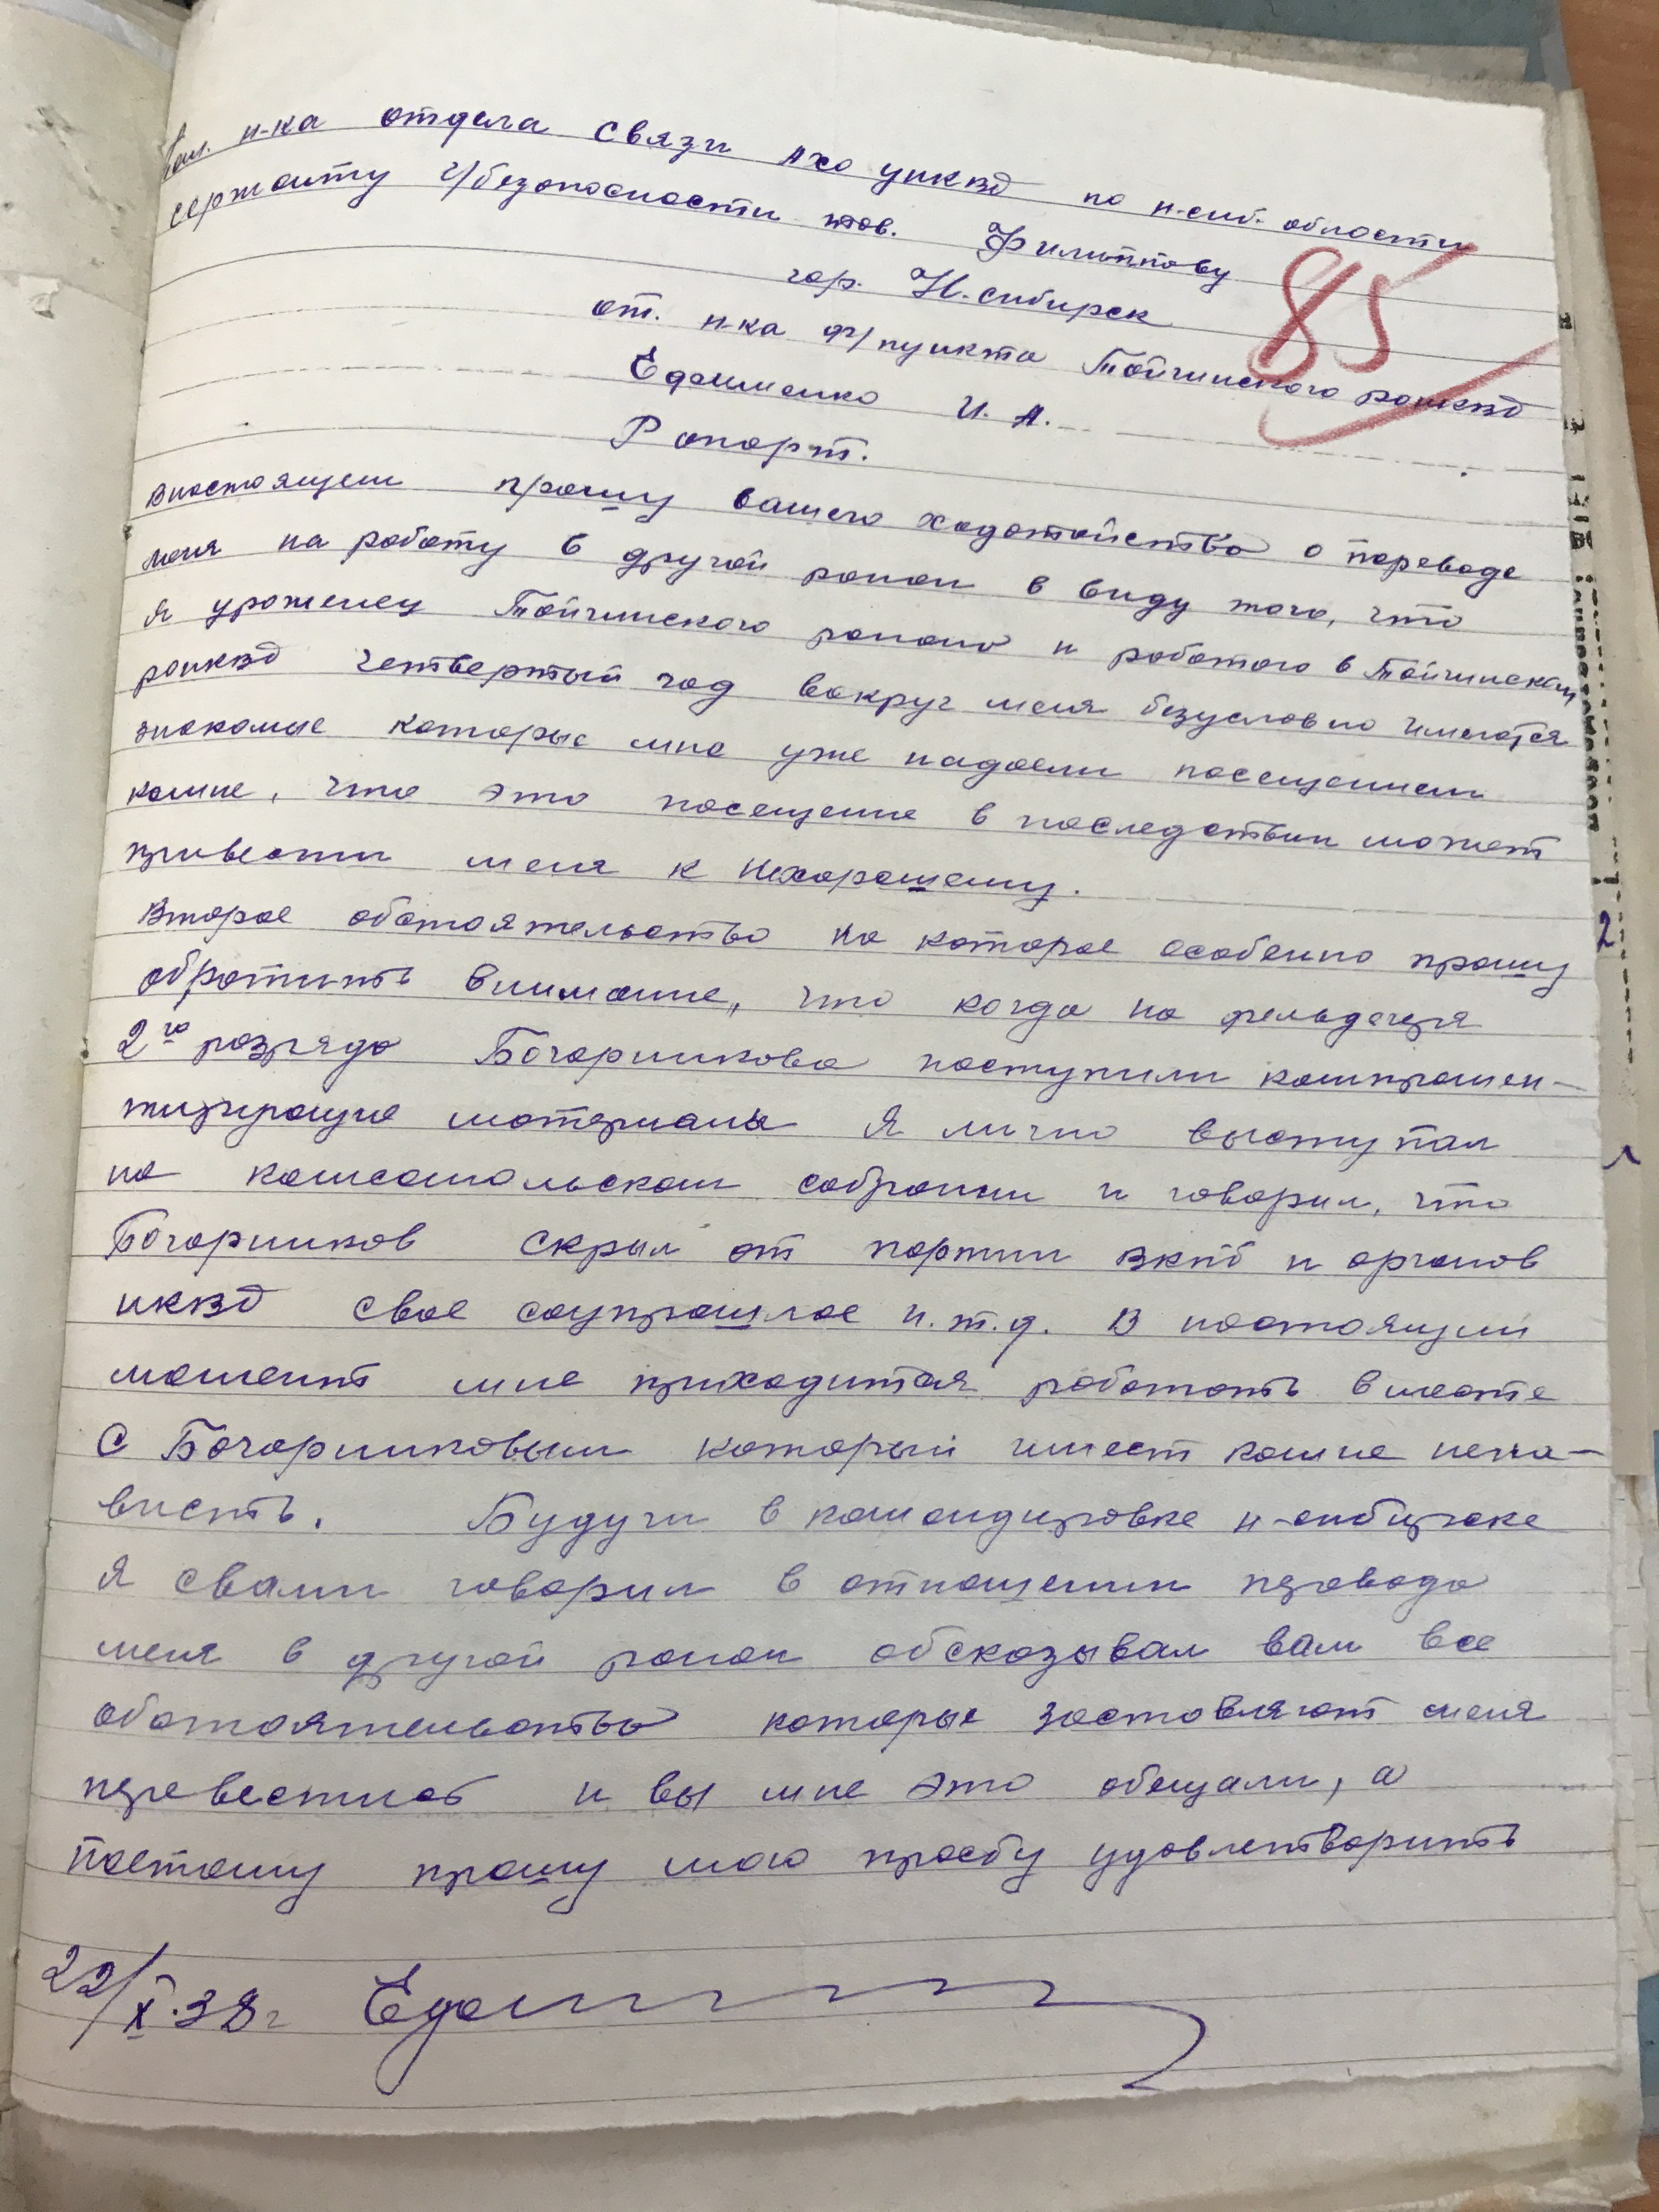 Пом. н-ка отдела связи АХО УНКВД по н-сиб. области
сержанту г/безопасности тов. Филиппову
гор. Н. сибирск
85
от. н-ка ф/пункта Тойчинского РОНКВД
Едоменко И. А.
Рапорт.
внастоящем прошу вашего ходотойства о переводе
меня на работу в другой район в виду того, что
я уроженец Тойчинского района и работаю в Тойчинском
РОНКВД четвертый год вокруг меня безусловно имеются
знакомые которые мне уже надоели посещением
комне, что это посещение в последствии может
привести меня к нехорошему.
Второе обстоятельство на которое особенно прошу
обратить внимание, что когда на фельдегеря
2го разряда Бочарникова поступили компромен-
тирующие материалы я лично выступал
на комсомольском собрании и говорил, что
Бочарников скрыл от партии ВКПб и органов
НКВД свое соцпрошлое и.т.д. В настоящий
момент мне приходится работать вместе
с Бочарниковым который имеет комне нена-
висть. Будучи в командировке н-сибирске
я свами говорил в отношении перевода
меня в другой район обсказывал вам все
обстоятельства которые заставляют меня
перевестись и вы мне это обещали, а
поэтому прошу мою просбу удовлетворить
22/X.38г
2